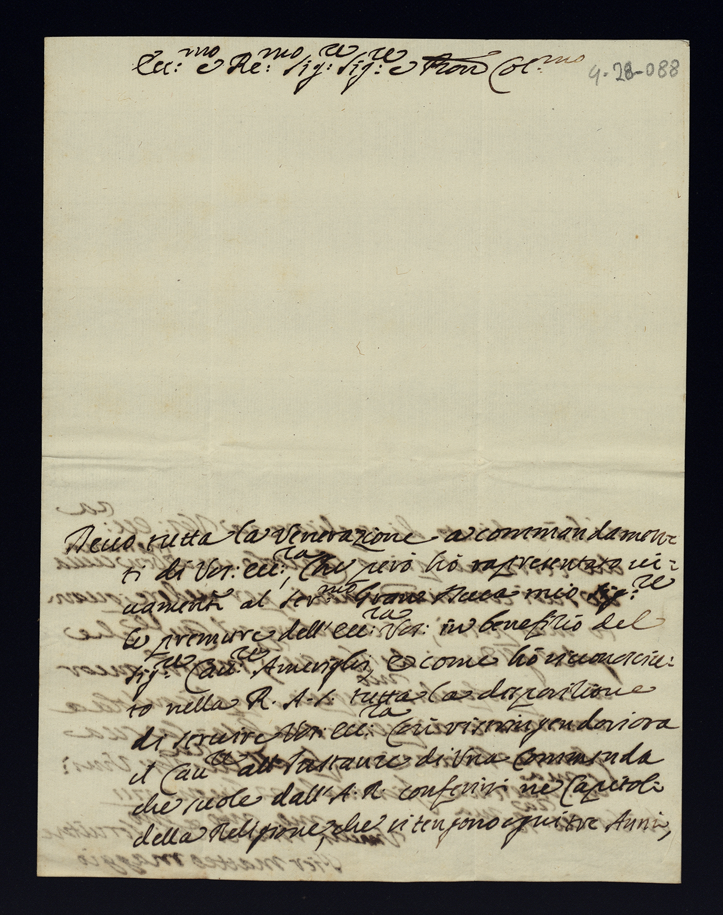 Ecc:mo e Re:mo Sig:re Sig:re e Pron Col:mo
9-28-088
Deuo tutta la Venerazione a commandamen
ti di Vos: ecc:za, Che però hò rapresentato ui=
uamente al Ser:mo Gran Duca mio Sig:re
le premure dell'ecc:za Vos: in benefizio del
Sig:re Cau:re Ameriglij, e come hò riconosciu=
to nella R. A. S. tutta la disposizione
di seruire Vos: ecc:za Così ristringendosi ora
il Cau:re all'Instanze di Una Commenda
che suole dall'A. R. conferirsi ne Capitoli
della Religione, che si tengono ogni tre Anni,